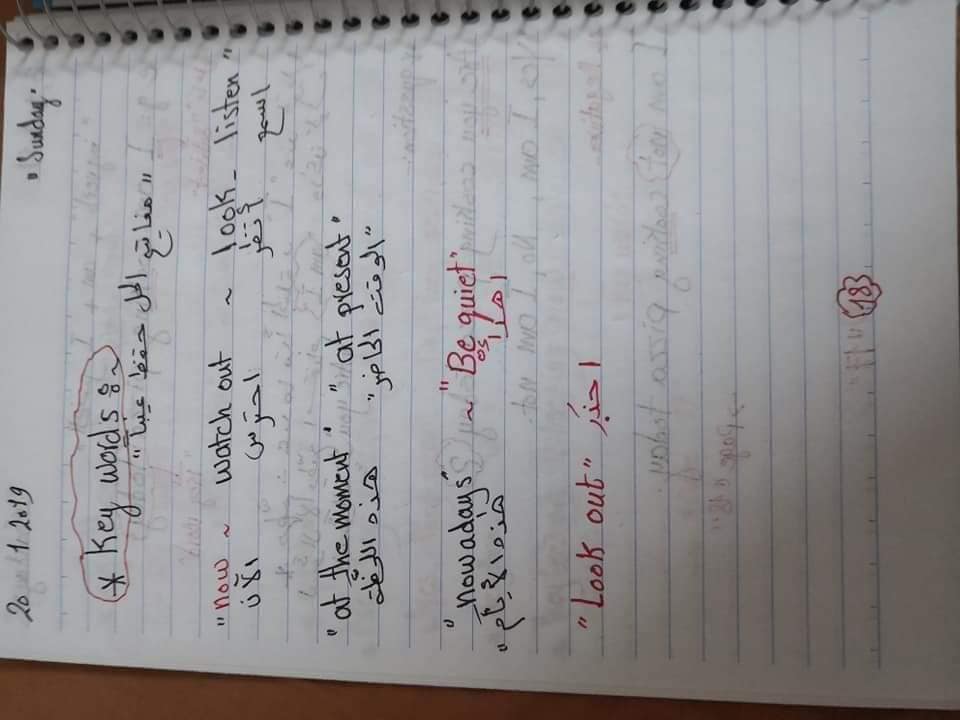 20 1 2019 "Sunday"
* Key words :~
"مفاتيح الحل حفظ غيبا"
"now ~ watch out ~ look - listen"
الآن احترس انظر اسمع
"at the moment" "at present"
هذه اللحظة "الوقت الحاضر"
"nowadays" ~ "Be quiet"
"هذه الأيام"
"Look out" احذر
18